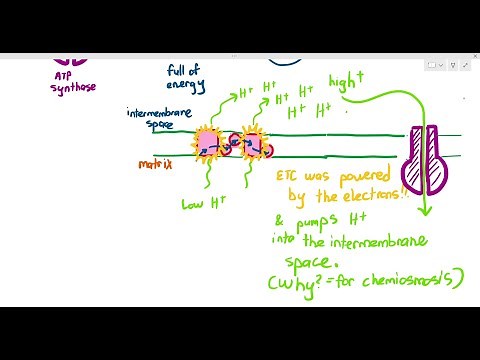 ATP
synthase
full of
energy
H+ H+ H+ H+ H+ H+ H+
high+
intermembrane
space
matrix
Low H+
ETC was powered
by the electrons!!
& pumps H+
into the intermembrane
space.
(Why? = for chemiosmosis)